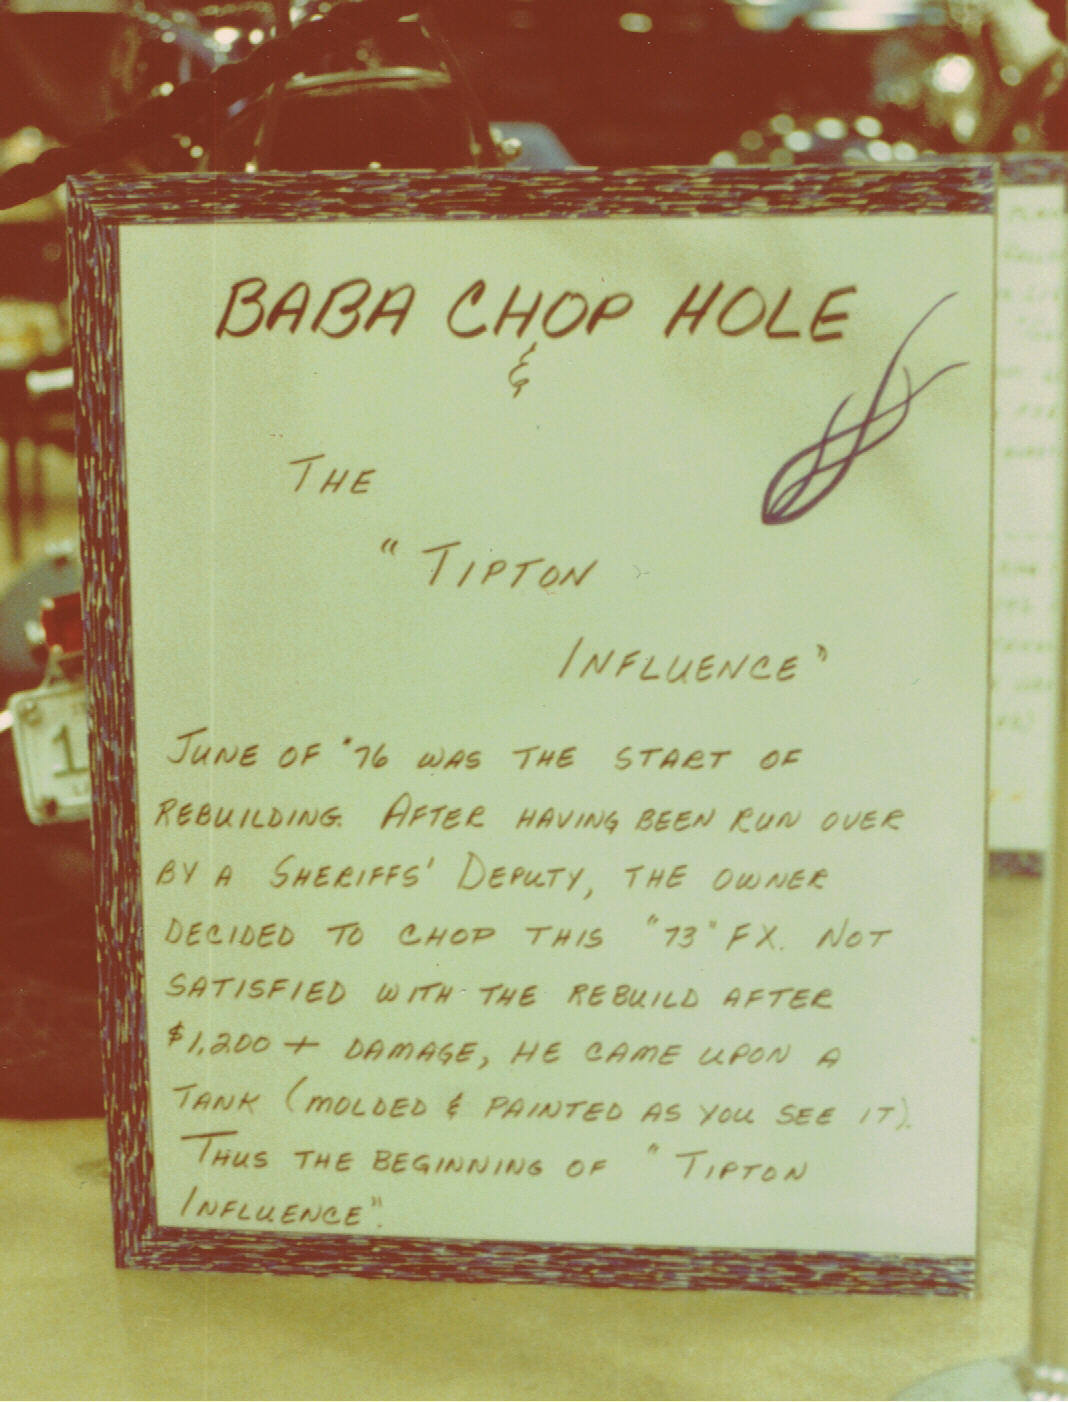 BABA CHOP HOLE
&
THE
"TIPTON
INFLUENCE"
JUNE OF '76 WAS THE START OF
REBUILDING. AFTER HAVING BEEN RUN OVER
BY A SHERIFFS' DEPUTY, THE OWNER
DECIDED TO CHOP THIS "73" FX. NOT
SATISFIED WITH THE REBUILD AFTER
$1,200 + DAMAGE, HE CAME UPON A
TANK (MOLDED & PAINTED AS YOU SEE IT).
THUS THE BEGINNING OF "TIPTON
INFLUENCE".